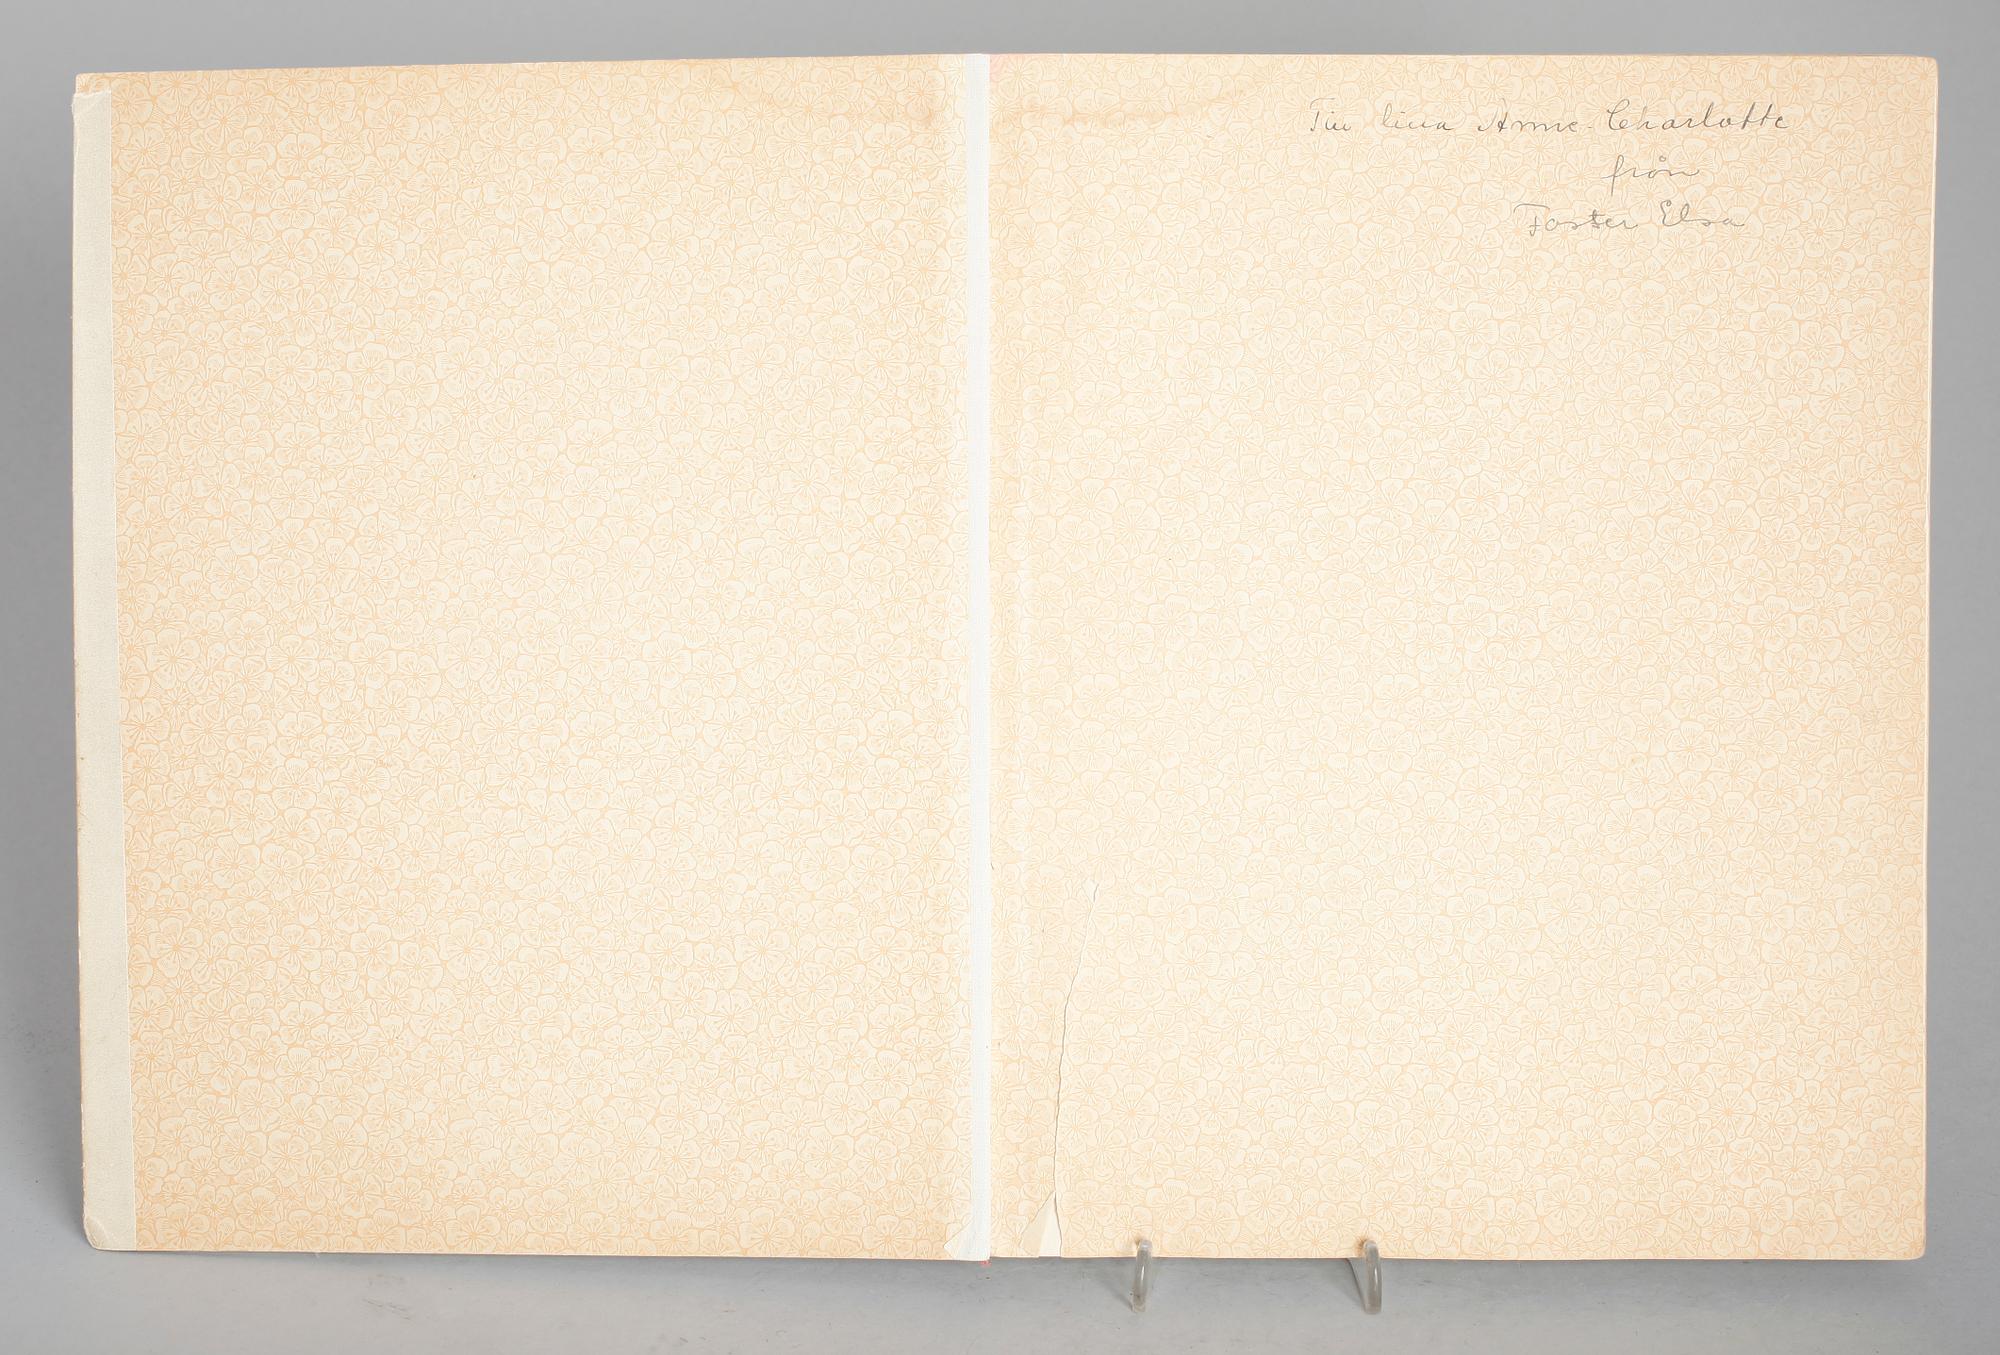 Till lilla Anne-Charlotte
från
Faster Elsa